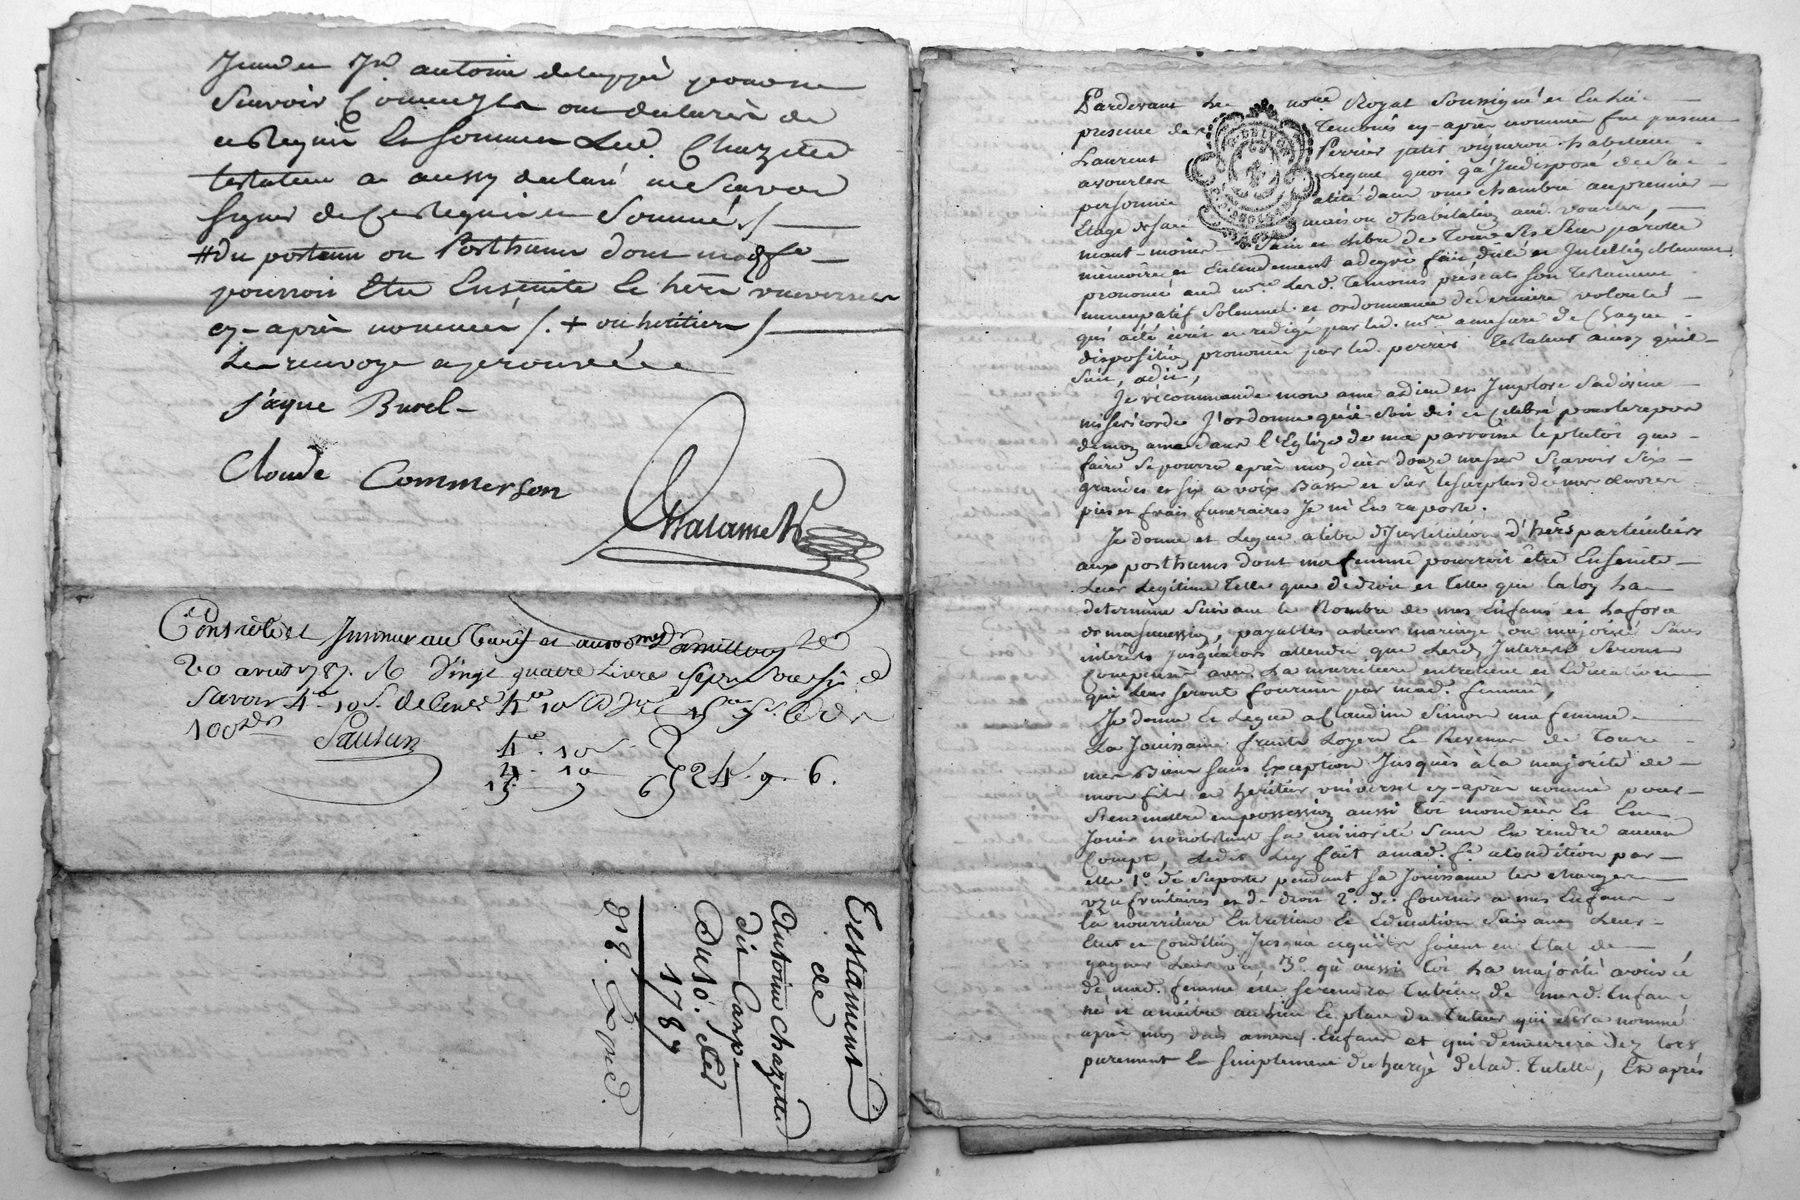 antoine
Scavoir ont declarés de
ce Requis et sommés Led. Chazette
testateur a aussy declaré ne Scavoir
signer de ce Requis et Sommé ./.
# du postume ou Posthumes dont mad. fe
pourroit Etre Enceinte le hérr universel
cy-après nommé /. + ou heritiers /
Le renvoye approuvée
Jaque Burel
Claude Commerson
Chalamet
Controlé et Insinué au Tarif et aux
20 avril 1787. R. Vingt quatre Livres Sept Six d
Savoir 4 10 S.
100
4. 10
4. 10
15. 9 6 } 24. 9. 6.
Testament
de
Antoine Chazette
dit Carpe
Du 10.
1787
Expéd.
Pardevant Le nore Royal Soussigné et En la
presence des Temoins cy-après nommés fut present
Laurent Perrier vigneron habitant
a vourles Lequel quoi qu'Indisposé de Sa
personne alité dans une chambre au premier
Etage de sa maison d'habitation aud. vourles,
néant-moins Sain et Libre de Tous Ses Sens parolle
mémoire et Entendement a de gré fait dicté et Intelligiblement
prononcé aud. nore. Lesd. Temoins presents Son Testament
nuncupatif Solemnel et ordonnance de derniere volonté
qui a été écrit et redigé par led. nore. a mesure de Chaque
disposition prononcée par led. perrier Testateur ainsy qu'il
Suit, a dit,
Je recommande mon ame a dieu et Implore Sa divine
miséricorde J'ordonne qu'il Soit dit et Celebré pour le repos
de mon ame dans l'Eglize de ma parroisse le plutôt que
faire Se pourra après mon décès douze messes Scavoir Six
grandes et Six a voix Basse et Sur le surplus de mes oeuvres
pies et frais funeraires Je m'En raporte.
Je donne et Legue a titre d'Institution d'hers particuliers
aux posthumes dont ma femme pourroit être Enceinte
Leur Legitime Telle que de droit et Telle que la loy la
determine Suivant le Nombre de mes Enfans et la force
de ma succession, payables a leur mariage ou majorité Sans
intérêts Jusqu'alors attendu que Lesd. Interests Seront
Compensés avec La nourriture entretient et Education
qui Leur Seront fournies par mad. femme,
Je donne et Legue a Claudine Simon ma femme
La Jouissance fruits Loyers et Revenus de Tous
mes Biens Sans Exception Jusques à la majorité de
mon fils et héritier universel cy-après nommé pour
S'en mettre en possession aussi Tot mon décès Et En
Jouir nonobstant Sa minorité Sans En rendre aucun
Compte, Ledit Leg fait a mad. fe. a Condition par
elle 1o. de Suporter pendant Sa Jouissance les charges
uzufruitaires et de droit 2o. de fournir a mes Enfans
la nourriture Entretient et Education Suivant Leur
Etat et Condition Jusqu'a ce qu'ils Soient en Etat de
gagner Leur vie 3o. qu'aussi Tot La majorité arrivée
de mad. femme elle Sera Tutrice de mesd. Enfans
au lieu et place du Tuteur qui Sera nommé
après mon décès a mesd. Enfans et qui demeurera dez lors
purement et Simplement déchargé de lad. Tutelle, Et après